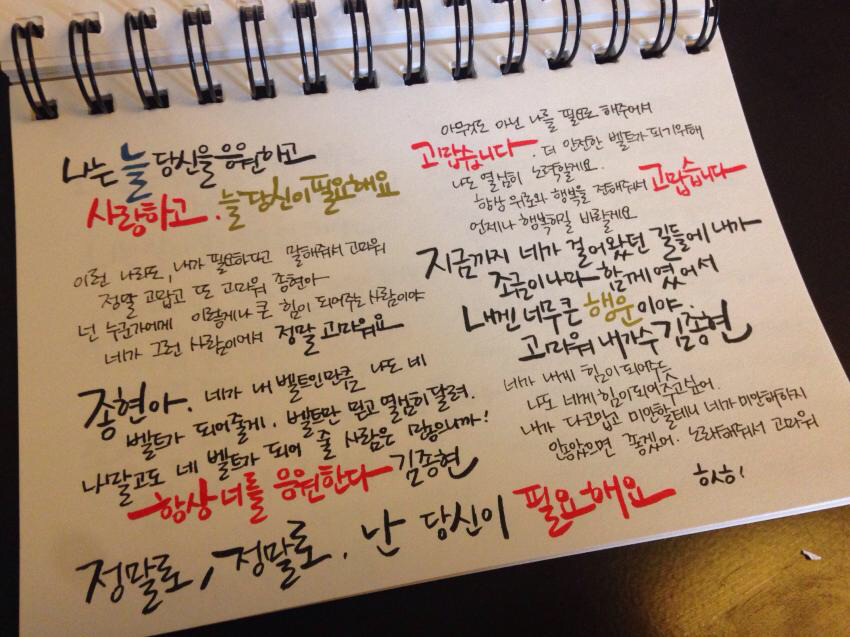 나는 늘 당신을 응원하고
사랑하고. 늘 당신이 필요해요
이런 나라도, 내가 필요하다고 말해줘서 고마워
정말 고맙고 또 고마워 종현아
넌 누군가에게 이렇게나 큰 힘이 되어주는 사람이야
네가 그런 사람이어서 정말 고마워요
종현아. 네가 내 벨트인만큼 나도 네
벨트가 되어줄게. 벨트만 믿고 열심히 달려.
나말고도 네 벨트가 되어 줄 사람은 많으니까!
항상 너를 응원한다 김종현
아무것도 아닌 나를 필요로 해주어서
고맙습니다. 더 안전한 벨트가 되기위해
나도 열심히 노력할게요.
항상 위로와 행복을 전해줘서 고맙습니다
언제나 행복하길 바랄게요
지금까지 네가 걸어왔던 길들에 내가
조금이나마 함께였어서
내겐 너무 큰 행운이야.
고마워 내가수 김종현
네가 내게 힘이 되어주듯
나도 네게 힘이 되어주고싶어.
내가 다 고맙고 미안할테니 네가 미안해하지
않았으면 좋겠어. 노래해줘서 고마워
정말로, 정말로. 난 당신이 필요해요